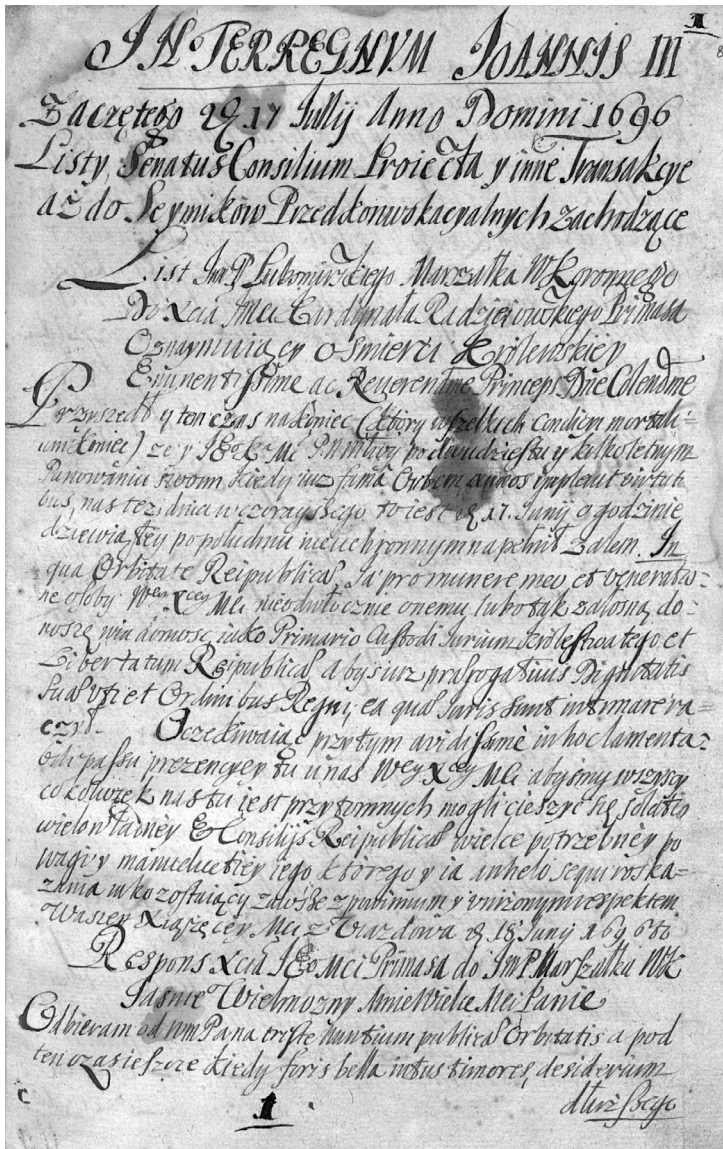 1
INTERREGNVM IOANNIS III
Zaczętego 17 Iullij Anno Domini 1696
Listy, Senatus Consilium Proiecta y inne Transakcye
aż do Seymików Przedkonwokacyalnych zachodzące
List Im P Lubomirskiego Marszałka WKoronnego
Do Xcia Jmci Kardynała Radzieiowskiego Primasa
Oznaymuiący o Smierci Krolewskiey
Eminentissime ac Reuerendme Princeps Dne Colendme
Przyszedł y ten czas na koniec (który wszelkich condicij mortali=
um koniec) ze y Mci P. po dwudziestu y kilkoletnym
Panowaniu swoim kiedy iuz fama Orbem, annos impleuit virtuti
bus, nas tez dnia wczorayszego to iest 17. Junij o godzinie
dziewiątey po południu nieuchronnym napełnił zalem. In
qua Orbitate Reipublicæ, Ja pro munere meo et veneratio=
ne osoby Wey Xcey Mci nieodwłocznie onemu lubo tak załosną do=
noszę wiadomosc, iako Primario Custodi Iurium Krolestwa tego et
Libertatum Reipublicæ, abys iuz prærogatiuis Dignitatis
suæ vti et Ordinibus Regni, ea quæ Iuris sunt intimare ra=
czył. Oczekiwaiąc przytym avidissime in hoc lamenta=
bili passu prezencyey tu u nas Wey Xcey Mci abysmy wszyscy
cokolwiek nas tu iest przytomnych mogli cieszyc się solatio
wielowładney & Consilijs Reipublicæ wielce potrzebney po
wagi y manuductiey iego którego y ia anhelo sequi roska=
zania iako zostaiący zawsze z powinnym y vnizonym respektem
Waszey Xiązęcey Mci z Viazdowa 18 Junij 1696
Respons Xcia JEo Mci Primasa do Im P. Marszałka WK
Jasnie Wielmozny Mnie Wielce Mci Panie
Odbieram od Wm Pana triste nuntium publicæ Orbitatis a pod
ten czas ieszcze kiedy foris bella intus timores, desiderium
dłuzszego
1